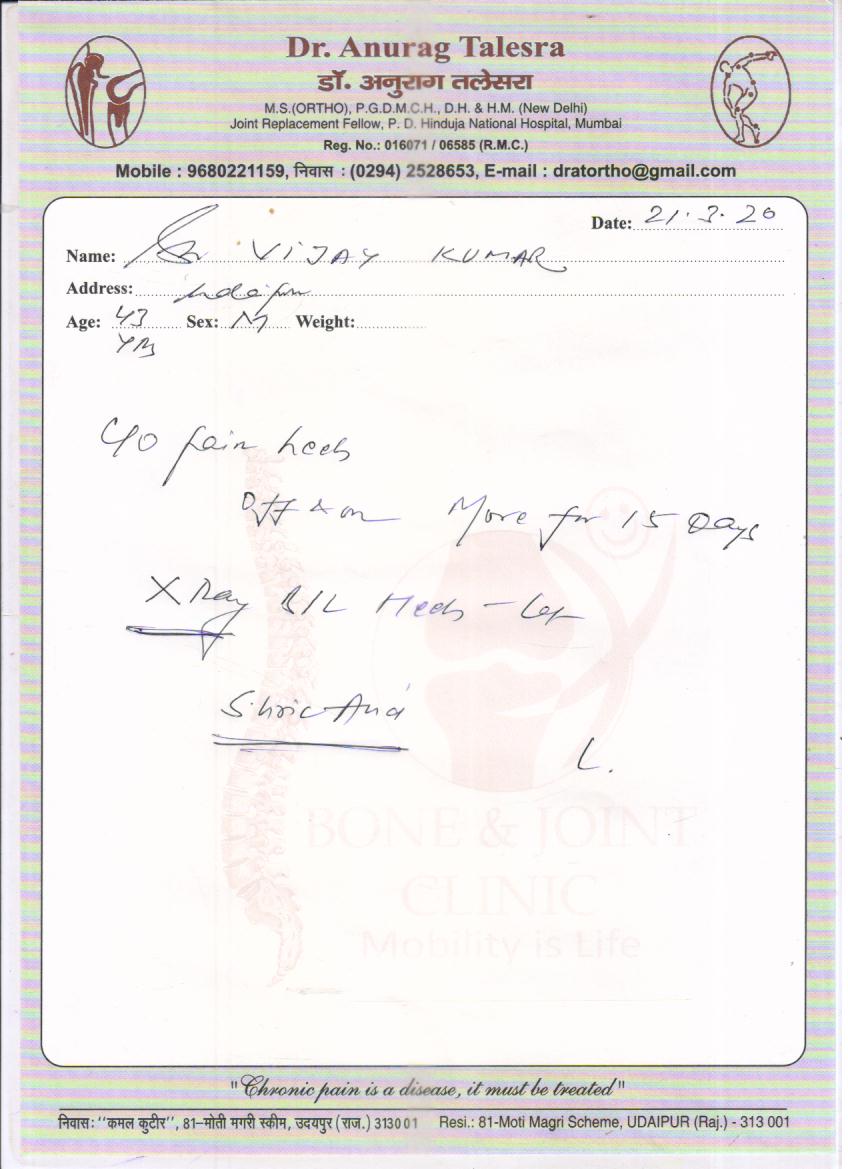 Dr. Anurag Talesra
डॉ. अनुराग तलेसरा
M.S.(ORTHO), P.G.D.M.C.H., D.H. & H.M. (New Delhi)
Joint Replacement Fellow, P. D. Hinduja National Hospital, Mumbai
Reg. No.: 016071 / 06585 (R.M.C.)
Mobile : 9680221159, निवास : (0294) 2528653, E-mail : dratortho@gmail.com
Date: 21.3.20
Name: VIJAY KUMAR
Address:
Age: 43 Sex: M Weight:
Yrs
C/O pain heels
Off & on More for 15 Days
X Ray B/L Heels - Lat
BONE & JOINT
CLINIC
Mobility is Life
"Chronic pain is a disease, it must be treated"
निवास: "कमल कुटीर", 81-मोती मगरी स्कीम, उदयपुर (राज.) 313001 Resi.: 81-Moti Magri Scheme, UDAIPUR (Raj.) - 313 001